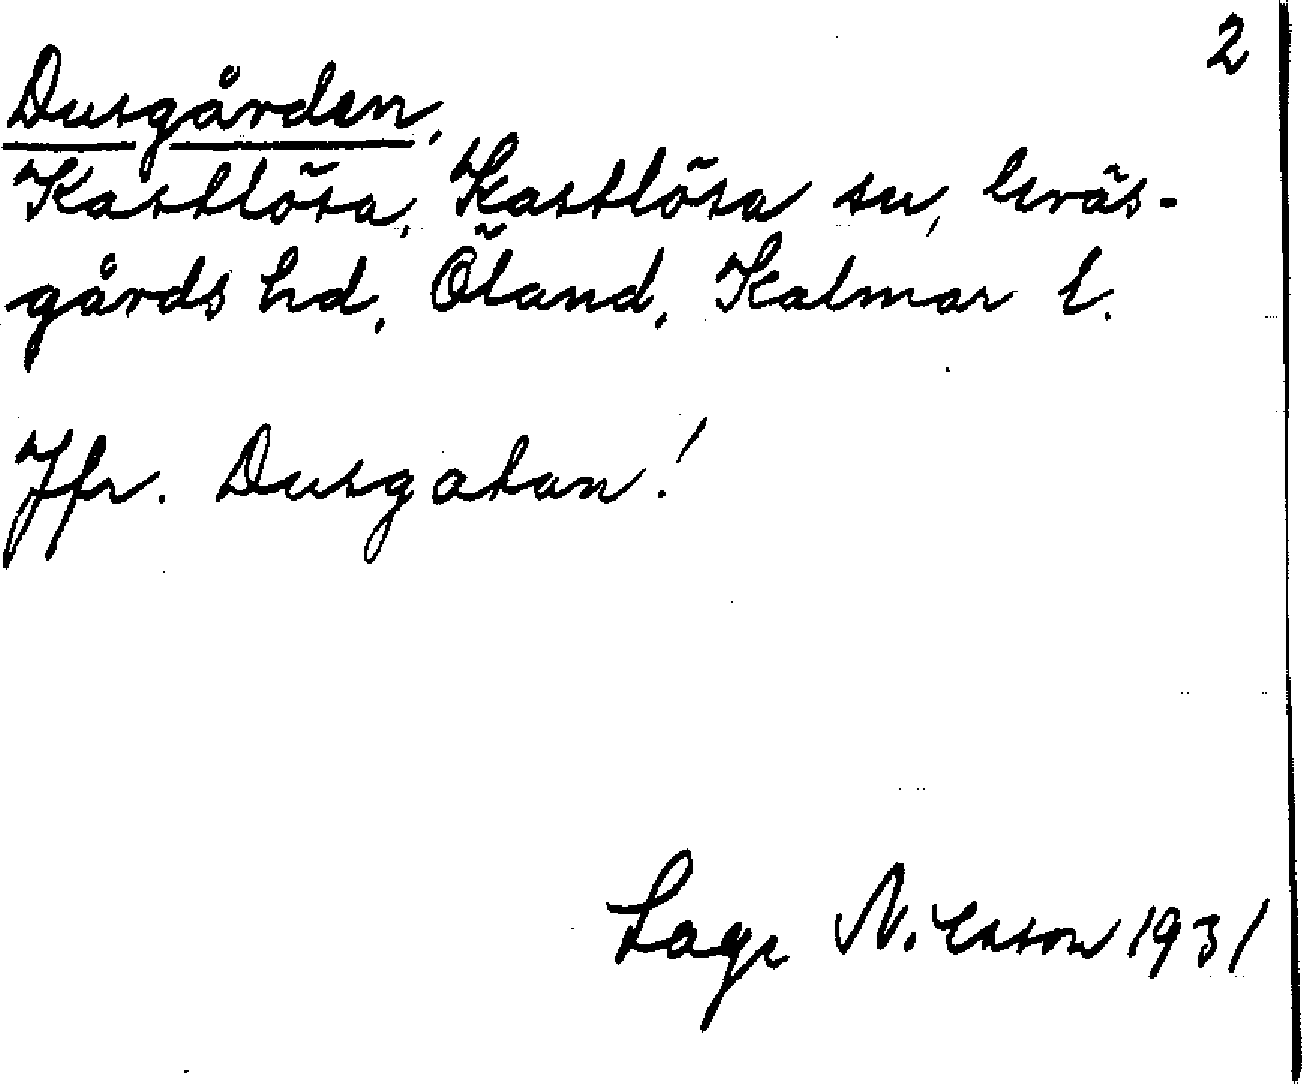 2
Dusgården,
Kastlösa, Kastlösa sn, Gräs-
gårds hd, Öland, Kalmar l.
Jfr. Dusgatan!
Lage Nilsson 1931